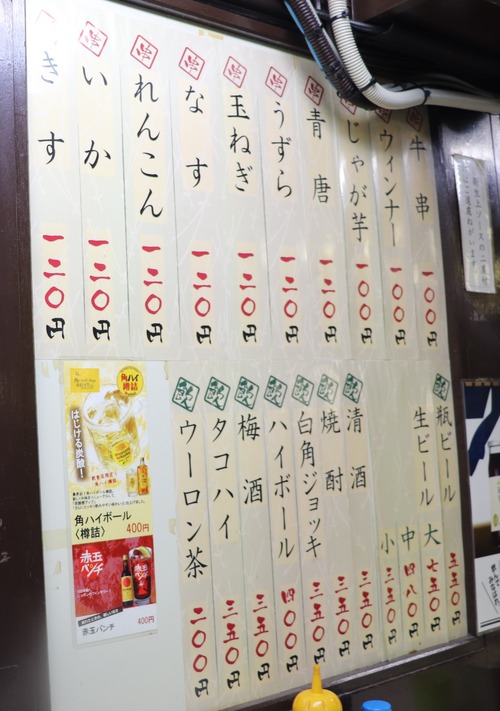 串 牛串 一〇〇円
ウィンナー 一〇〇円
じゃが芋 一〇〇円
串 青唐 一二〇円
串 うずら 一二〇円
串 玉ねぎ 一二〇円
串 なす 一二〇円
串 れんこん 一二〇円
串 いか 一二〇円
きす 一二〇円
飲 瓶ビール 五五〇円
生ビール 大 七五〇円
中 四八〇円
小 三五〇円
飲 清酒 三五〇円
飲 焼酎 三五〇円
飲 白角ジョッキ 三五〇円
飲 ハイボール 四〇〇円
飲 梅酒 三五〇円
飲 タコハイ 三五〇円
飲 ウーロン茶 二〇〇円
角ハイ
樽詰
はじける炭酸!
角ハイボール
〈樽詰〉 400円
赤玉
パンチ
赤玉パンチ 400円